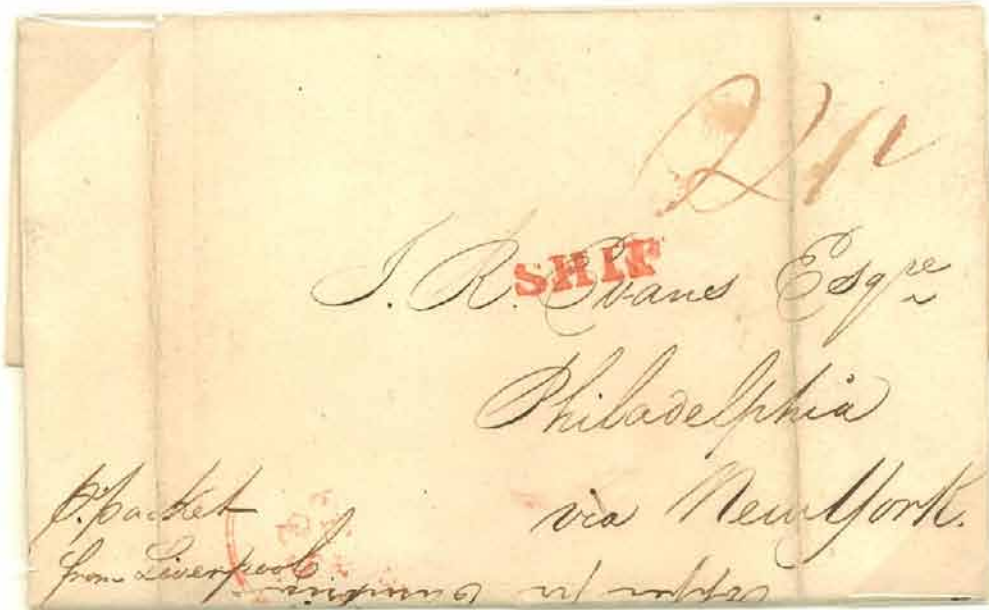 SHIP
J. R. Evans Esqre
Philadelphia
via New York.
p. packet
from Liverpool